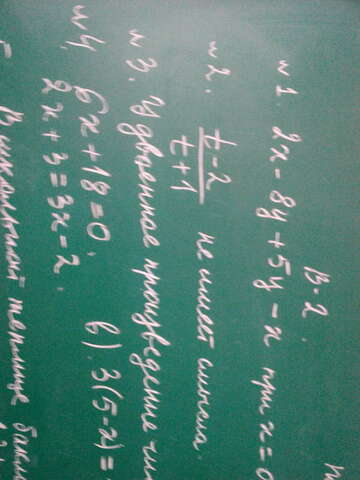 В-2.
№1. 2x-8y+5y-x при x=0
№2. t-2
t+1 не имеет смысла.
№3. Удвоенное произведение
№4. 6x+18=0. в). 3(5-x)=
2x+3=3x-2.
В школьной теплице